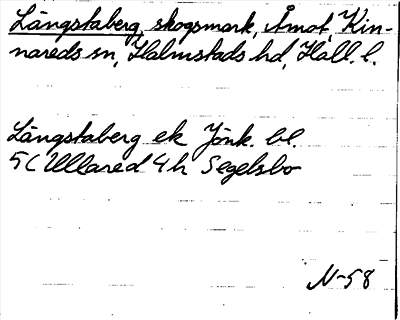 Långstaberg, skogsmark, Åmot, Kin-
nareds sn, Halmstads hd, Hall. l.
Långstaberg ek Jönk. bl.
5C Ullared 4h Segelsbo
N-58